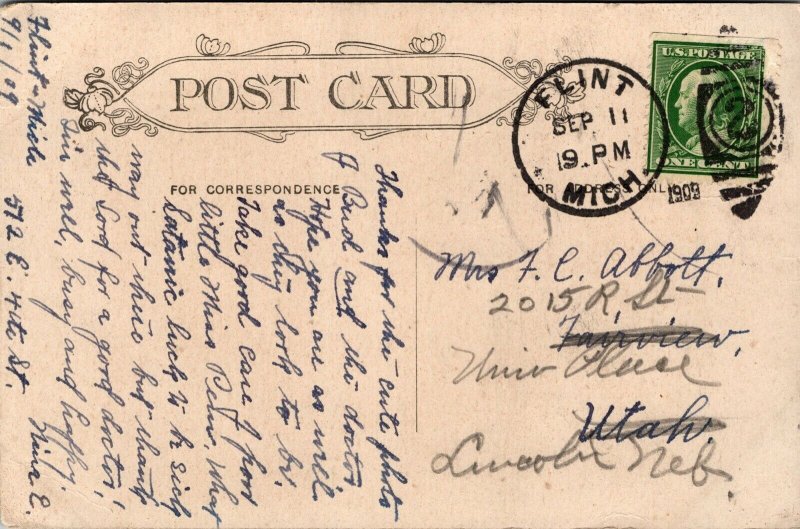 POST CARD
FOR CORRESPONDENCE
FOR ADDRESS ONLY
U.S. POSTAGE
ONE CENT
FLINT
SEP 11
9 PM
MICH.
1909
Mrs F. C. Abbott,
2015 R St
Fairview,
Univ Place
Utah.
Lincoln Neb
Flint - Mich 512 E. 4th St.
9/11/09
Thanks for the cute photo
of Bud and the doctor
Hope you are as well
as they look to be.
Take good care of poor
little Miss Benr. What
satanic luck to be sick
way out there but thank
the Lord for a good doctor!
I'm well, busy and happy.
Nina E.